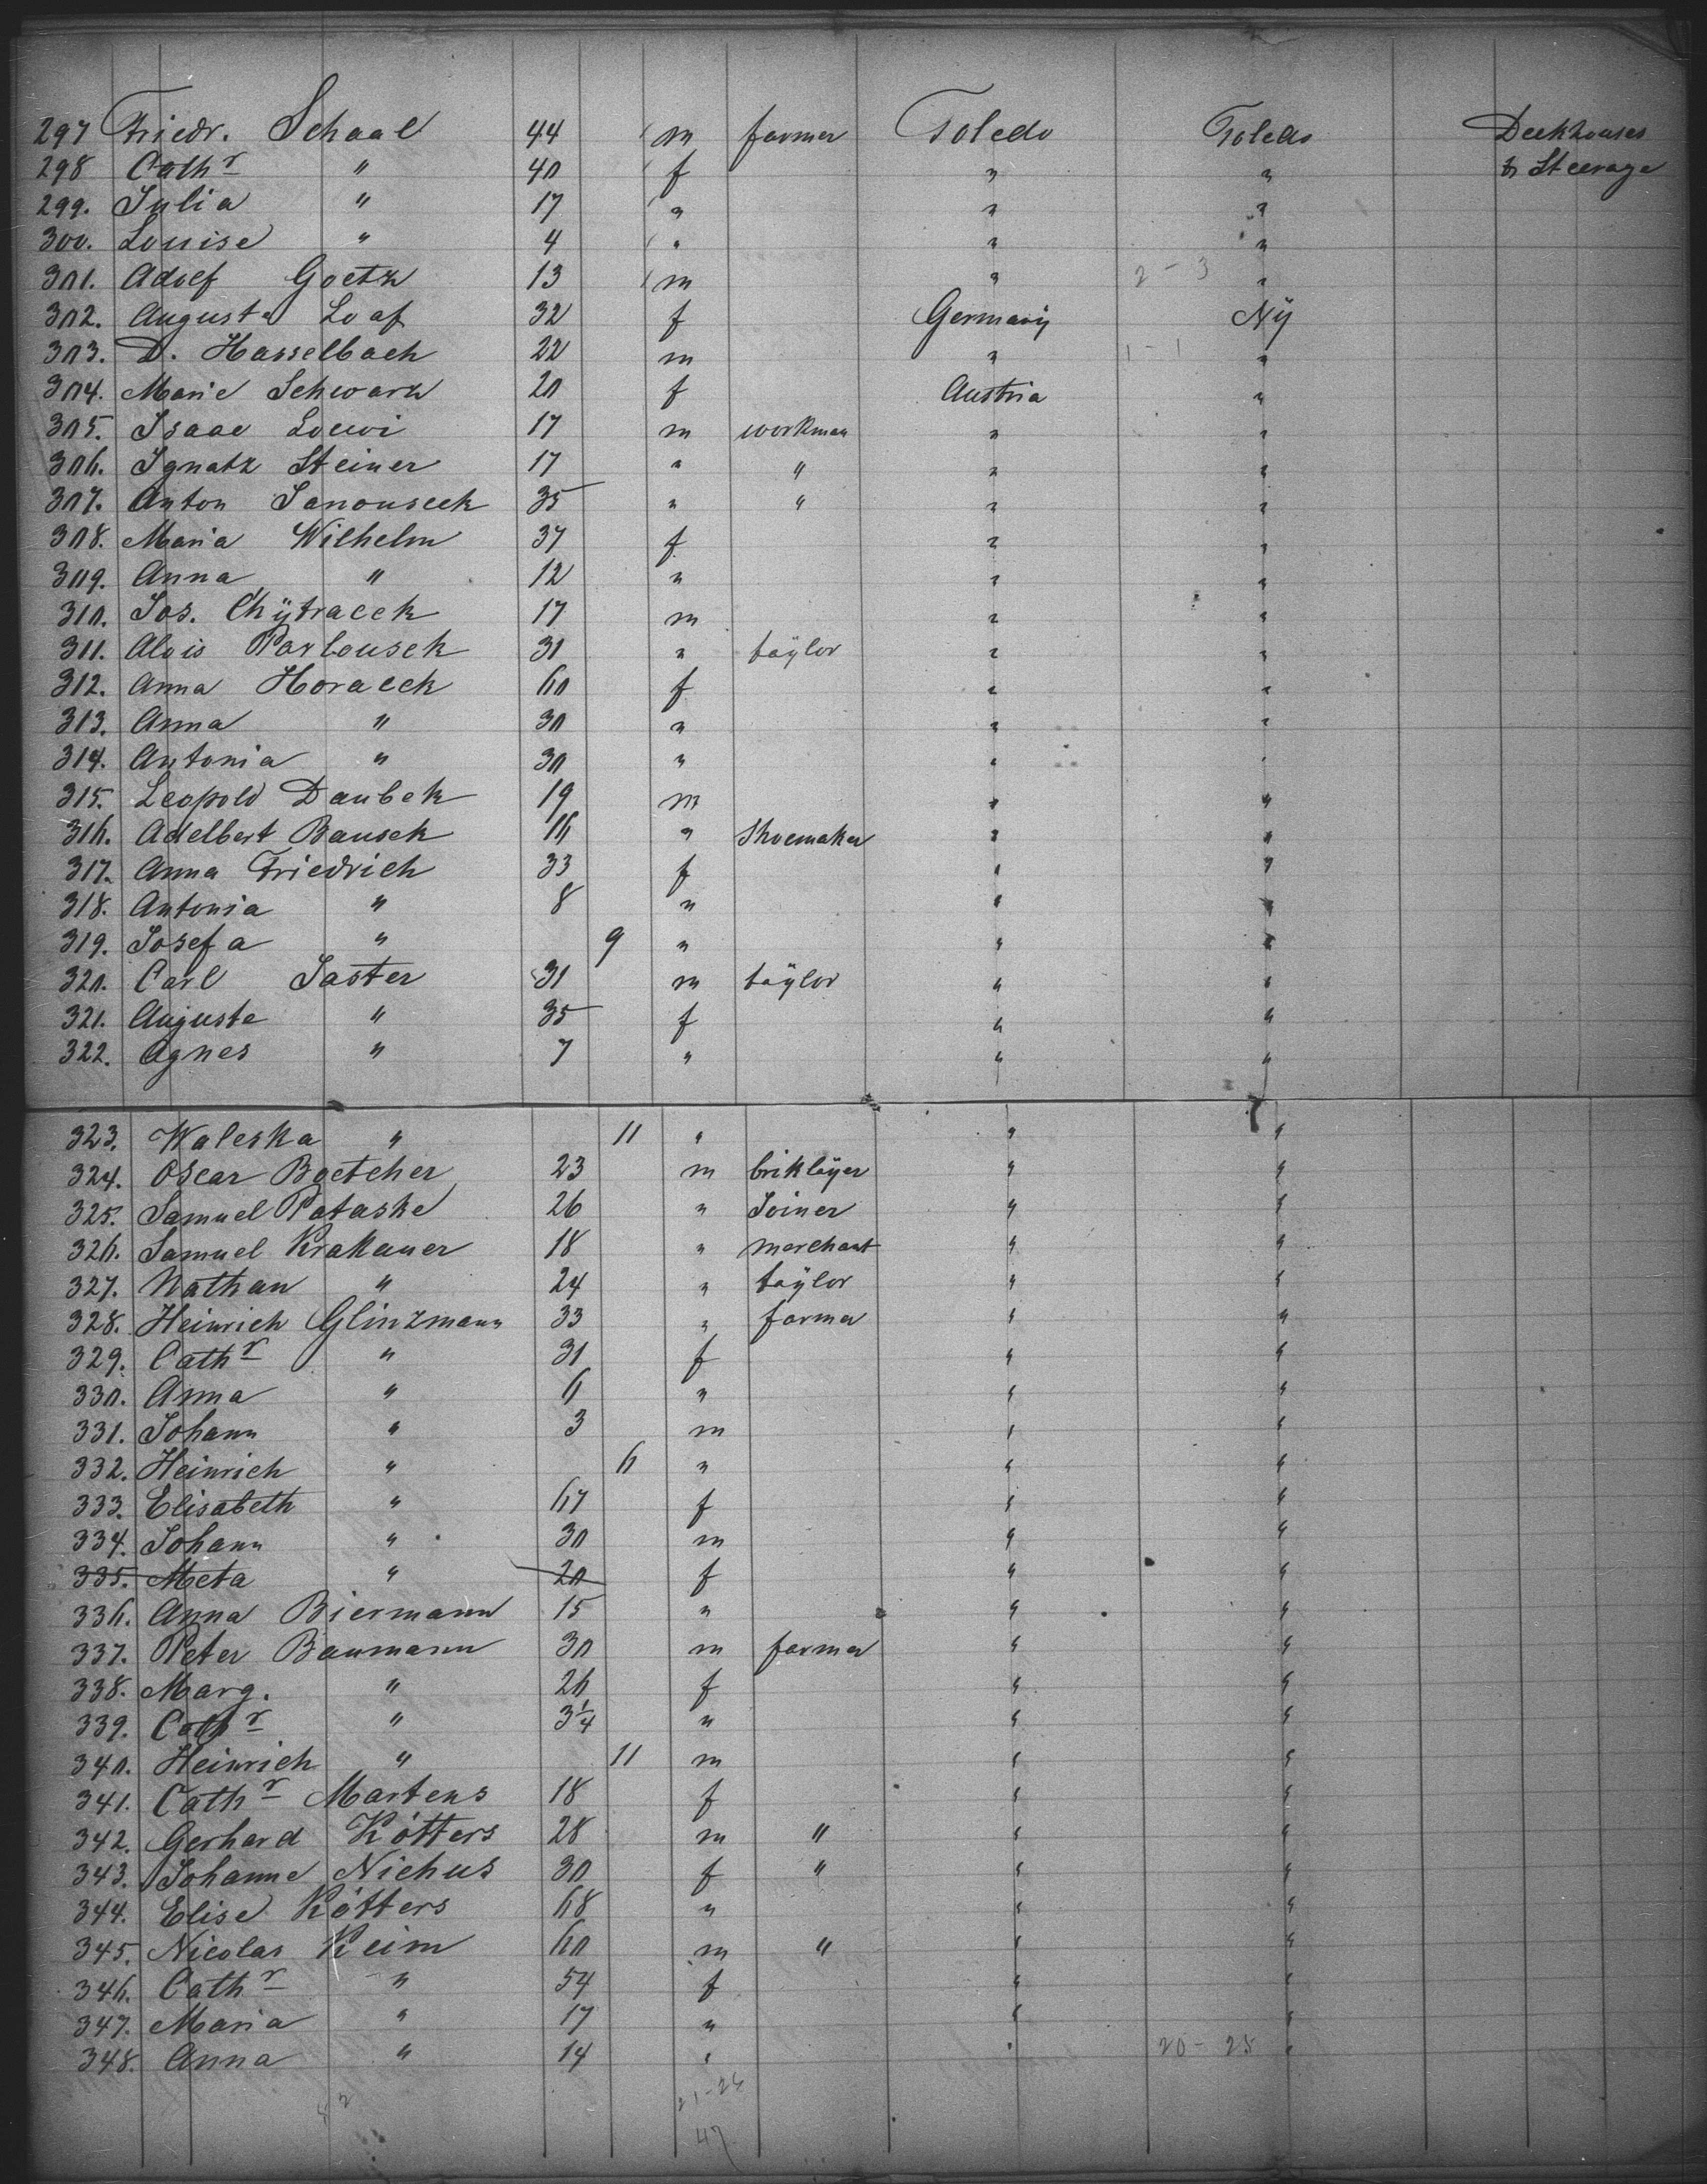 297 Friedr. Schaal 44 m farmer Toledo Toledo Deckhouses
298 Cathr " 40 f " " & Steerage
299. Julia " 17 " " "
300. Louise " 4 " " "
301. Adolf Goetz 13 m " 2-3 "
302. Augusta Loaf 32 f Germany Ny
303. D. Hasselbach 22 m " 1-1 "
304. Marie Schwarz 20 f Austria "
305. Isaac Loewi 17 m workman " "
306. Ignatz Steiner 17 " " " "
307. Anton Janouseek 35 " " " "
308. Maria Wilhelm 37 f " "
309. Anna " 12 " " "
310. Jos. Chÿtracek 17 m " "
311. Alois Parlousek 31 " taÿlor " "
312. Anna Horaeek 60 f " "
313. Anna " 30 " " "
314. Antonia " 30 " " "
315. Leopold Daubek 19 m " "
316. Adelbert Bausek 16 " Shoemaker " "
317. Anna Friedrich 33 f " "
318. Antonia " 8 " " "
319. Josefa " 9 " " "
320. Carl Jaster 31 m taÿlor " "
321. Auguste " 35 f " "
322. Agnes " 7 " " "
323. Waleska " 11 " " "
324. Oscar Boetcher 23 m briklaÿer " "
325. Samuel Pataske 26 " Joiner " "
326. Samuel Krakauer 18 " merchant " "
327. Nathan " 24 " taÿlor " "
328. Heinrich Glinzmann 33 " farmer " "
329. Cathr " 31 f " "
330. Anna " 6 " " "
331. Johann " 3 m " "
332. Heinrich " 6 " " "
333. Elisabeth " 67 f " "
334. Johann " 30 m " "
335. Meta " 20 f " "
336. Anna Biermann 15 " " "
337. Peter Baumann 30 m farmer " "
338. Marg. " 26 f " "
339. Cathr " 3¼ " " "
340. Heinrich " 11 m " "
341. Cathr Martens 18 f " "
342. Gerhard Kötters 28 m " " "
343. Johanne Niehus 30 f " " "
344. Elise Kötters 68 " " "
345. Nicolas Keim 60 m " " "
346. Cathr " 54 f " "
347. Maria " 17 " " "
348. Anna " 14 " " 20-25 "
21-26
47